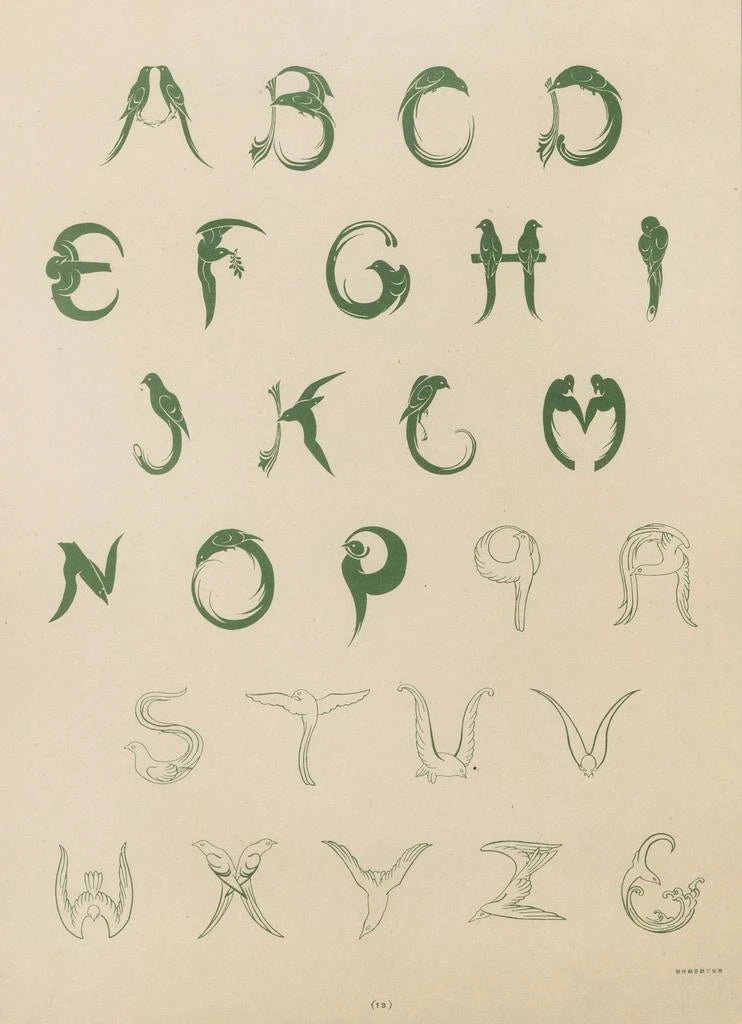 A B C D
E F G H I
J K L M
N O P Q R
S T U V
W X Y Z &
(13)